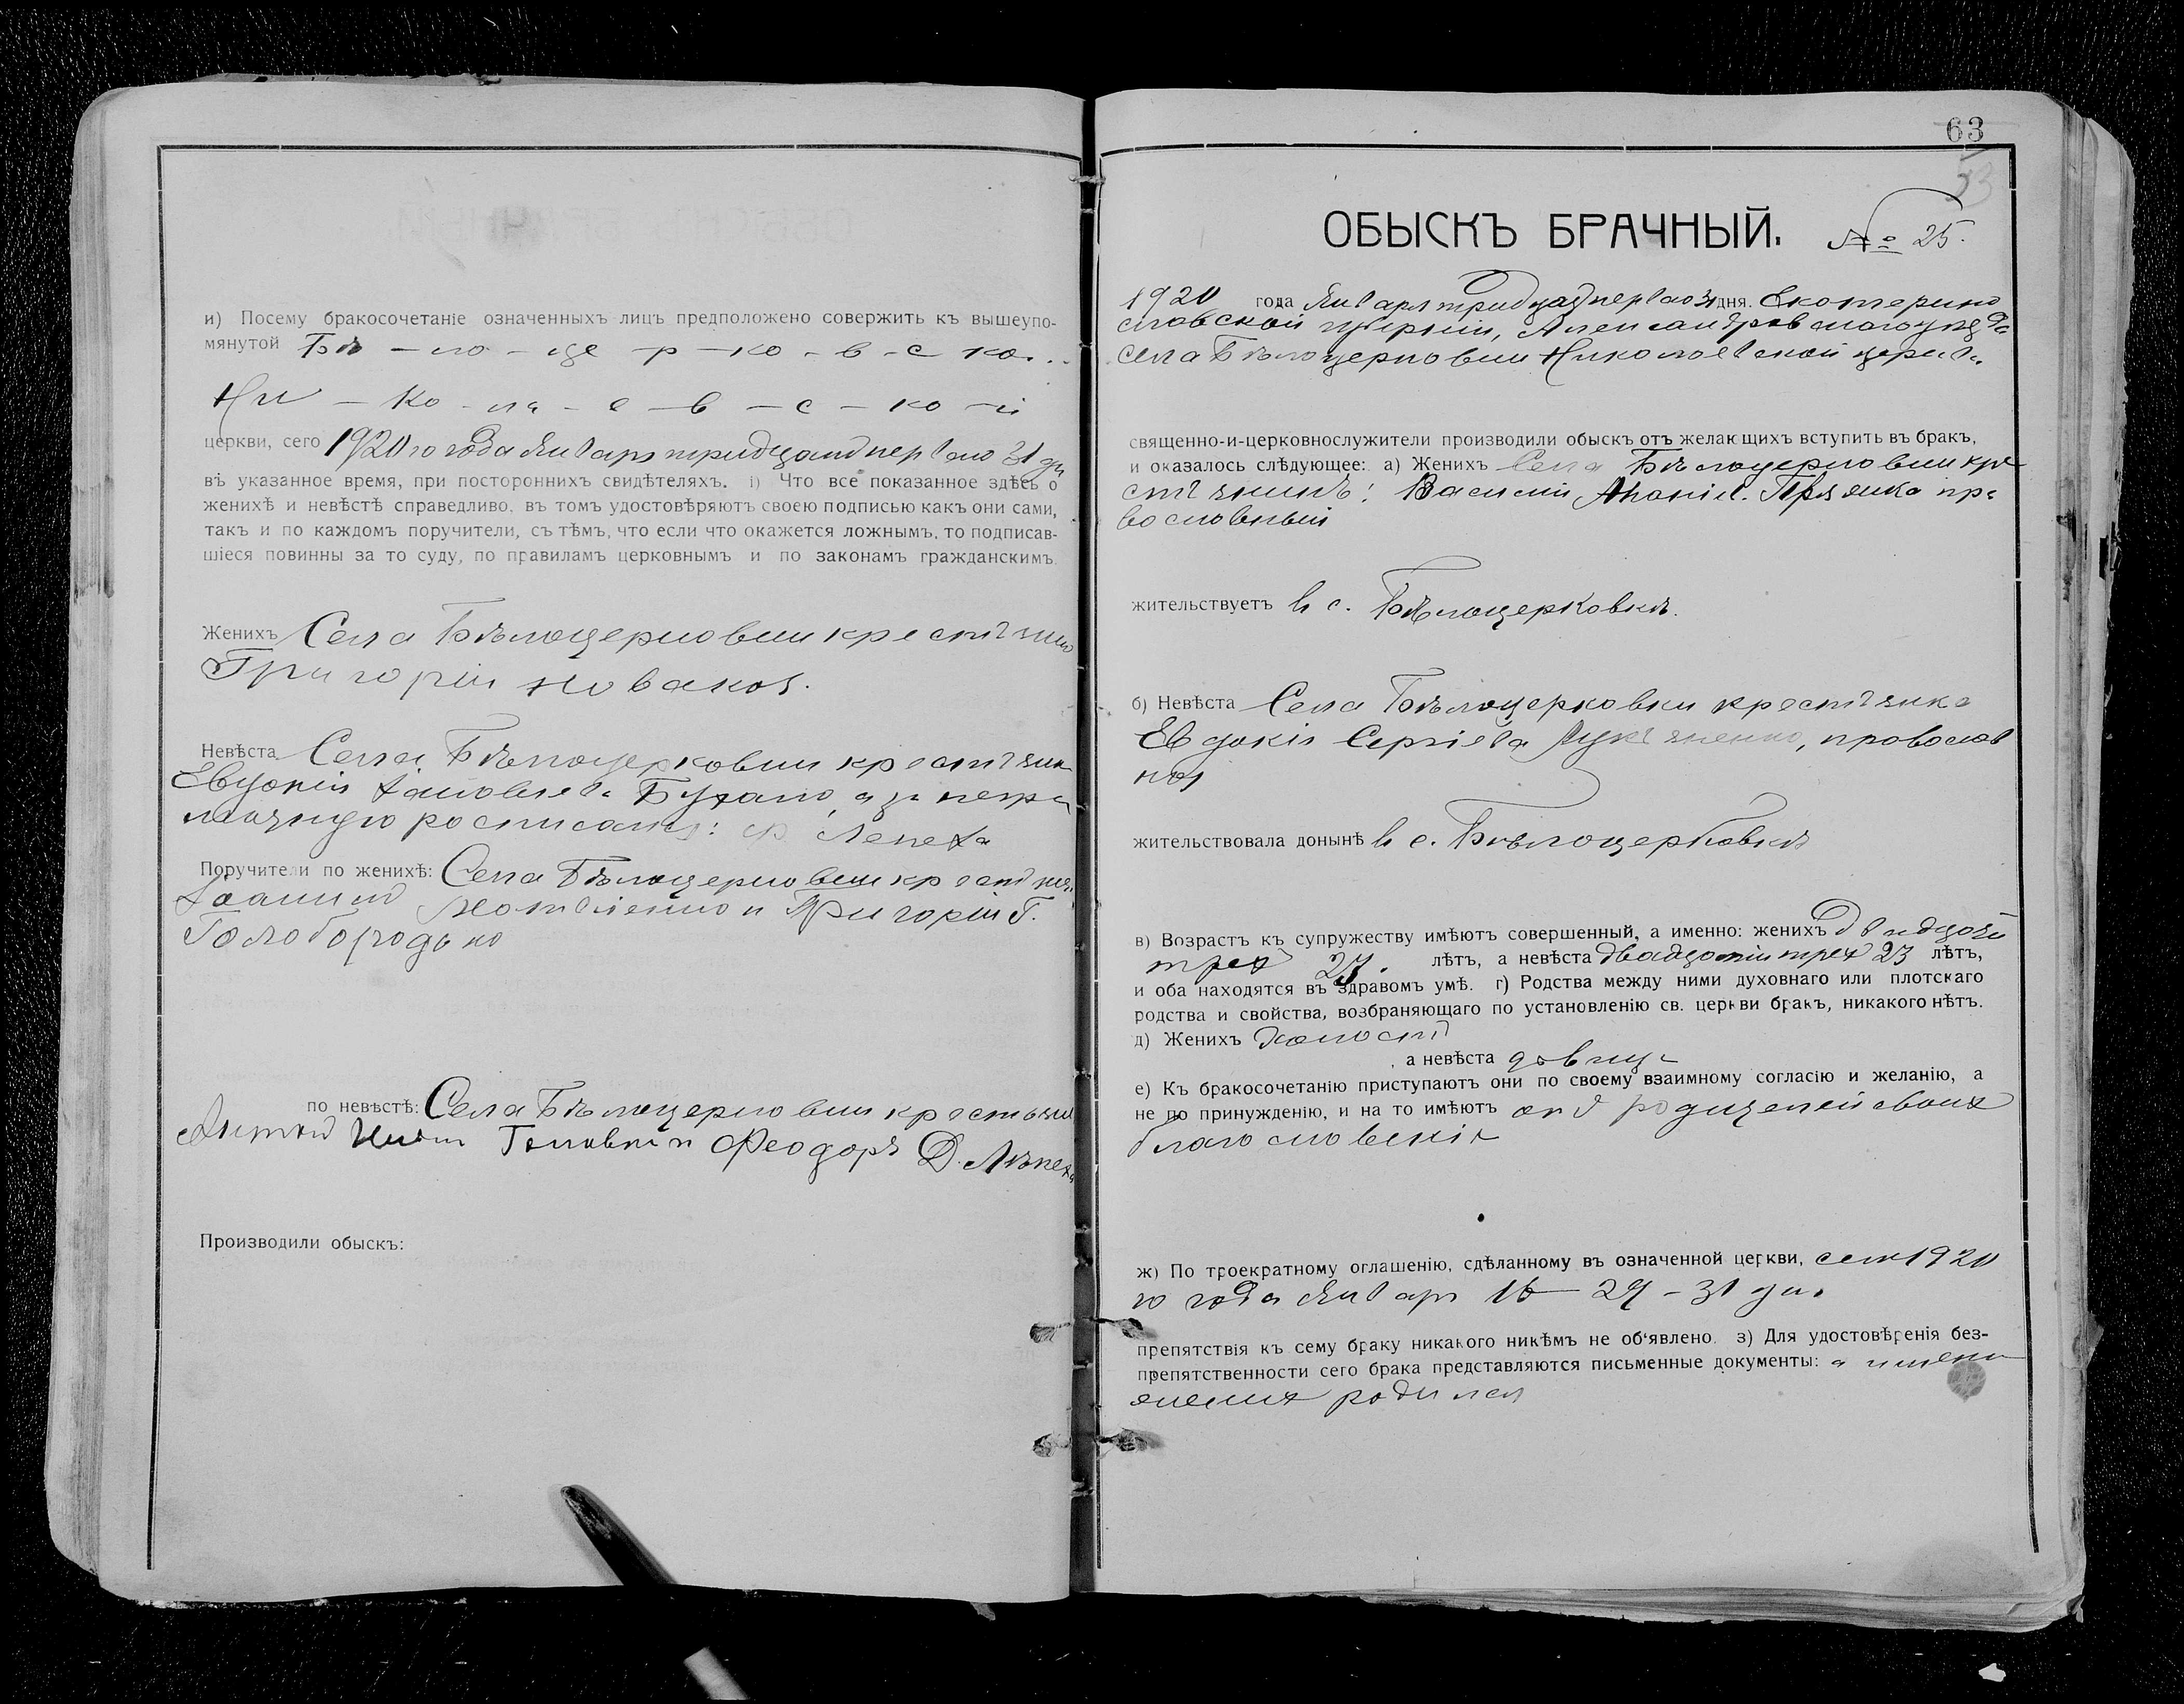 и) Посему бракосочетаніе означенныхъ лицъ предположено совержить къ вышеупо-
мянутой Бѣ - ло - це - р - ко - в - с ко...
Ни - ко - ла - е - в - с - ко - й
церкви, сего 1920 го года Января тридцать первого 31 дн
въ указанное время, при постороннихъ свидѣтеляхъ. і) Что все показанное здѣсь о
женихѣ и невѣстѣ справедливо, въ томъ удостовѣряютъ своею подписью какъ они сами,
такъ и по каждомъ поручители, съ тѣмъ, что если что окажется ложнымъ, то подписав-
шіеся повинны за то суду, по правиламъ церковнымъ и по законамъ гражданскимъ.
Женихъ Села Бѣлоцерковки
Григорій Новаков.
Невѣста Села Бѣлоцерковки
Евдокія а за негра
мотную Лепеха
Поручители по женихѣ: Села Бѣлоцерковки
Іоаннъ и Григорій Г.
Голобородько
по невѣстѣ: Села Бѣлоцерковки
Головко и Феодоръ Д. Лѣпеха
Производили обыскъ:
63
53
ОБЫСКЪ БРАЧНЫЙ. № 25.
1920 года Января тридцать первого 31 дня. Екатерино
славской губерніи, Александровского уѣзда
села Бѣлоцерковки Николаевской церкви
священно-и-церковнослужители производили обыскъ отъ желающихъ вступить въ бракъ,
и оказалось слѣдующее: а) Женихъ Села Бѣлоцерковки кре
Василій Ананіев. пра
вославный
жительствуетъ в с. Бѣлоцерковкѣ.
б) Невѣста Села Бѣлоцерковки
Евдокія Сергіева православ
ная
жительствовала донынѣ в с. Бѣлоцерковкѣ
в) Возрастъ къ супружеству имѣютъ совершенный, а именно: женихъ двадцати
трех 23. лѣтъ, а невѣста двадцати трех 23 лѣтъ,
и оба находятся въ здравомъ умѣ. г) Родства между ними духовнаго или плотскаго
родства и свойства, возбраняющаго по установленію св. церкви бракъ, никакого нѣтъ.
д) Женихъ холост
, а невѣста девица
е) Къ бракосочетанію приступаютъ они по своему взаимному согласію и желанію, а
не по принужденію, и на то имѣютъ от родителей своих
благословенія
ж) По троекратному оглашенію, сдѣланному въ означенной церкви, сего 1920
го года Января 29 - 31 дня
препятствія къ сему браку никакого никѣмъ не об'явлено. з) Для удостовѣренія без-
препятственности сего брака представляются письменные документы: а именно
жених родился